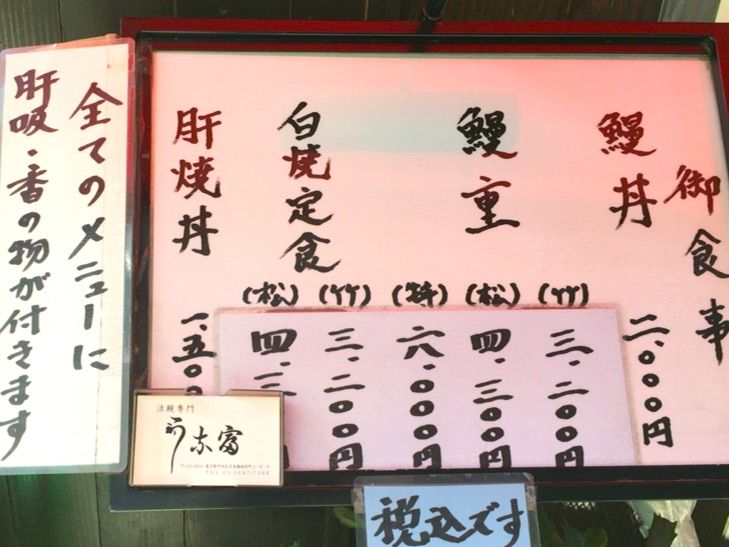 御食事
鰻丼
二、〇〇〇円
鰻重
(竹)
三、二〇〇円
(松)
四、三〇〇円
(特)
六、〇〇〇円
白焼定食
(竹)
三、二〇〇円
(松)
四、
肝焼丼
一、五〇〇
全てのメニューに
肝吸・香の物が付きます
活鰻専門
税込です